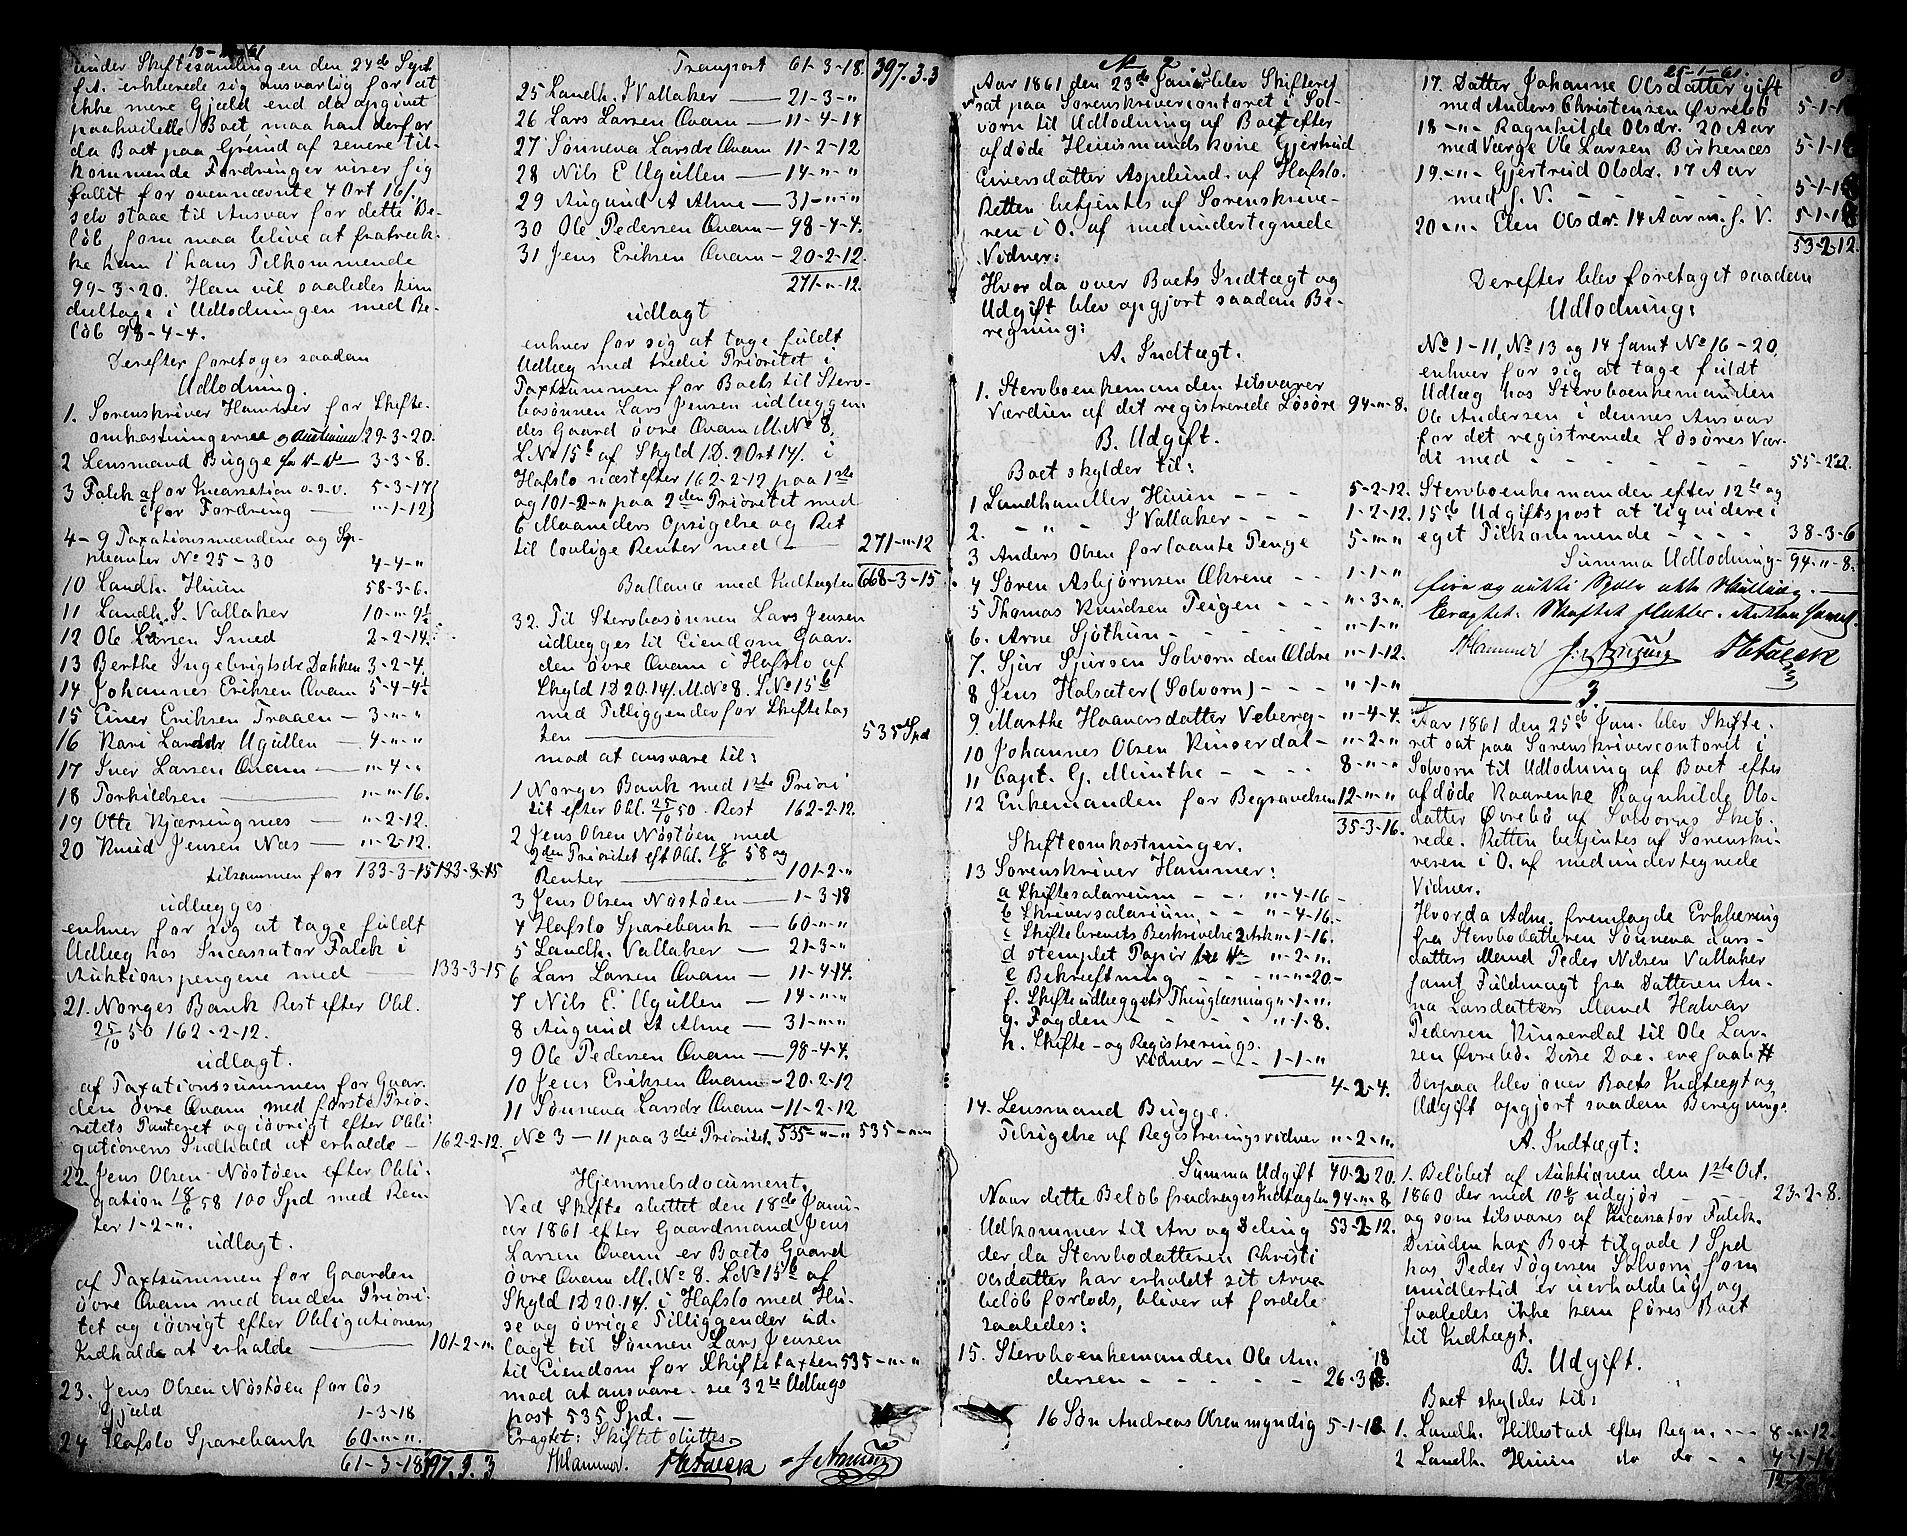 18-1-61
under Skiftesamlingen den 24de Sept.
f.A. erklærede sig ansvarlig for at
ikke mere Gjæld end da opgivet
paahvilede Boet, maa han derfor
da Boet paa Grund af senere til-
kommende Fordringer viser sig
fallit for ovennævnte 4 Ort 16/.
selv staae til Ansvar for dette Be-
løb, som maa blive at fratræk-
ke ham i hans Tilkommende
99-3-20. Han vil saaledes kun
deeltage i Udlodningen med Be-
løb 98-4-4.
Derefter foretoges saadan
Udlodning.
1. Sorenskriver Hammer for Skifte-
omkostningerne og Auctionen 29-3-20.
2 Lensmand Bugge for 3-3-8.
3 Falck a for Incassation o.s.v. 5-3-17
c for Fordring — "-1-12
4-9 Taxationsmændene og Sup-
pleanter No 25-30 4-4-"
10 Landh. Hiuin 58-3-6.
11 Landh. J. Vallaker 10-"-9½
12 Ole Larsen Smed 2-2-14.
13 Berthe Ingebrigtsdr. Dokken 3-2-4.
14 Johannes Eriksen Qvam 5-4-4½
15 Einer Eriksen Traaen — 3-"-"
16 Kari Larsdr Ugullen — 4-"-"
17 Iver Larsen Qvam — "-4-"
18 Torkildsen — "-"-16.
19 Otte Kjærringnæs — "-2-12.
20 Knud Jensen Næs — "-2-12.
tilsammen for 133-3-15 133-3-15
udlægges
enhver for sig at tage fuldt
Udlæg hos Incassator Falck i
Auktionspengene med — 133-3-15
21. Norges Bank Rest efter Obl.
25/10 50 162-2-12.
udlagt.
af Taxationssummen for Gaar-
den øvre Qvam med første Prio-
ritets Panteret og iøvrigt efter Obli-
gationens Indhold at erholde — 162-2-12.
22. Jens Olsen Nøstøen efter Obli-
gation 18/6 58 100 Spd med Ren-
ter 1-2-".
udlagt.
af Taxtsummen for Gaarden
øvre Qvam med anden Priori-
tet og iøvrigt efter Obligationens
Indhold at erholde — 101-2-".
23. Jens Olsen Nøstøen for løs
Gjæld 1-3-18
24 Hafslo Sparebank 60-"-".
61-3-18 397.3.3
Transport 61-3-18. 397.3.3
25 Landh. J Vallaker — 21-3-"
26 Lars Larsen Qvam — 11-4-14
27 Sønneva Larsdr Qvam 11-2-12
28 Nils E Ugullen — 14-"-"
29 Augund A Alme — 31-"-"
30 Ole Pedersen Qvam — 98-4-4.
31 Jens Eriksen Qvam — 20-2-12.
271-"-12.
udlagt
enhver for sig at tage fuldt
Udlæg med tredie Prioritet i
Taxtsummen for Boets til Sterv-
bosønnen Lars Jensen udlæggen-
des Gaard øvre Qvam M.No 8.
L.No 15b af Skyld 1D. 2 Ort 14/. i
Hafslo næstefter 162-2-12 paa 1ste
og 101-2-" paa 2den Prioritet med
6 Maaneders Opsigelse og Ret
til lovlige Renter med — 271-"-12
Ballance med Indtægten 668-3-15.
32. Til Stervbosønnen Lars Jensen
udlægges til Eiendom Gaar-
den øvre Qvam i Hafslo af
Skyld 1D 20.14/. M.No 8. L.No 15b
med Tilliggender for Skiftetax-
ten — 535 Spd
mod at ansvare til:
1 Norges Bank med 1ste Priori
tet efter Obl. 25/10 50. Rest 162-2-12.
2 Jens Olsen Nøstøen med
2den Prioritet eft Obl. 18/6 58 og
Renter — 101-2-"
3 Jens Olsen Nøstøen — 1-3-18
4 Hafslo Sparebank — 60-"-"
5 Landh. Vallaker — 21-3-"
6 Lars Larsen Qvam — 11-4-14.
7 Nils E. Ugullen — 14-"-"
8 Augund A Alme — 31-"-"
9 Ole Pedersen Qvam — 98-4-4.
10 Jens Eriksen Qvam — 20-2-12
11 Sønneva Larsdr Qvam — 11-2-12
No 3-11 paa 3die Prioritet. 535-"-" 535-"-"
Hjemmelsdocument.
Ved Skifte sluttet den 18de Janu-
ar 1861 efter Gaardmand Jens
Larsen Qvam er Boets Gaard
øvre Qvam M.No 8. L.No 15b af
Skyld 1D 20.14/. i Hafslo med Hu-
se og øvrige Tilliggender ud-
lagt til Sønnen Lars Jensen
til Eiendom for Skiftetaxten 535-"-"
mod at ansvare - see 32te Udlægs
post 535 Spd. —
Eragtet: Skiftet sluttes.
Hammer. HFalck
No 2
Aar 1861 den 23de Januar blev Skifteret
sat paa Sorenskrivercontoret i Sol-
vorn til Udlodning af Boet efter
afdøde Huusmandskone Gjertrud
Einersdatter Aspelund af Hafslo.
Retten betjentes af Sorenskrive-
ren i O. af medundertegnede
Vidner:
Hvor da over Boets Indtægt og
Udgift blev opgjort saadan Be-
regning:
A. Indtægt.
1. Stervboenkemanden tilsvarer
Værdien af det registrerede Løsøre 94-"-8.
B. Udgift.
Boet skylder til:
1 Landhandler Hiuin — 5-2-12.
2. " " J Vallaker — 1-2-12.
3 Anders Olsen for laante Penge 5-"-"
4 Søren Asbjørnsen Ækrene — 1-1-"
5 Thomas Knudsen Teigen — "-3-".
6. Arne Sjøthun — "-1-"
7. Sjur Sjursen Solvorn den Ældre "-1-12.
8 Jens Halsæter (Solvorn) — "-1-"
9. Marthe Haaversdatter Veberg — "-4-4.
10 Johannes Olsen Kinserdal — "-2-"
11 Capt. G. Munthe — 8-"-"
12 Enkemanden for Begravelsen 12-"-"
35-3-16.
Skifteomkostninger.
13 Sorenskriver Hammer:
a Skiftesalarium — "-4-16.
b Skriversalarium — "-4-16.
c Skiftebrevets Beskrivelse 2 Ark "-1-16.
d stemplet Papir — "-2-".
e Bekræftning — "-"-20.
f. Skifteudlæggets Thinglæsning "-1-".
g. Fogden — "-1-8.
h. Skifte- og Registrerings-
vidner — 1-1-"
4-2-4.
14. Lensmand Bugge.
Tilsigelse af Registreringsvidner "-2-".
Summa Udgift 40-2-20.
Naar dette Beløb fradrages Indtægten 94-"-8
Udkommer til Arv og Deling 53-2-12.
der da Stervbodatteren Christi
Olsdatter har erholdt sit Arve-
beløb forlods, bliver at fordele
saaledes:
15. Stervboenkemanden Ole An-
dersen — 26-3-18.
16 Søn Andreas Olsen myndig 5-1-18
25-1-61.
17. Datter Johanne Olsdatter gift
med Anders Christensen Øvrebø 5-1-18
18 -"- Ragnhilde Olsdr. 20 Aar
med Værge Ole Larsen Birkenæs 5-1-18
19. -"- Gjertrud Olsdr. 17 Aar
med f. V. — 5-1-18
20 -"- Elen Olsdr. 14 Aar m. f. V. 5-1-18
53-2-12.
Derefter blev foretaget saadan
Udlodning:
No 1-11, No 13 og 14 samt No 16-20
enhver for sig at tage fuldt
Udlæg hos Stervboenkemanden
Ole Andersen i dennes Ansvar
for det registrerede Løsøres Vær-
di med — 55-2-2.
Stervboenkemanden efter 12te og
15de Udgiftspost at liqvidere i
eget Tilkommende — 38-3-6
Summa Udlodning — 94-"-8.
fire og nitti Spdlr. otte Skilling.
Eragtet. Skiftet slutter.
Hammer HFalck
3.
Aar 1861 den 25de Jan. blev Skifte-
ret sat paa Sorenskrivercontoret i
Solvorn til Udlodning af Boet efter
afdøde Kaarenke Ragnhilde Ols-
datter Øvrebø af Solvorns Skib-
rede. Retten betjentes af Sorenskri-
veren i O. af medundertegnede
Vidner.
Hvor da Adm. fremlagde Erklæring
fra Stervbodatteren Sønneva Lars-
datters Mand Peder Nilsen Vallaker
samt Fuldmagt fra Datteren An-
na Larsdatters Mand Halvar
Pedersen Kinserdal til Ole Lar-
sen Øvrebø. Disse Doc. ere saal. #
Derpaa blev over Boets Indtægt og
Udgift opgjort saadan Beregning.
A. Indtægt:
1. Beløbet af Auktionen den 1ste Oct.
1860 der med 10% udgjør — 23-2-8.
og som tilsvares af Incassator Falck.
Desuden har Boet tilgode 1 Spd
hos Peder Tøgersen Solvorn som
imidlertid er uerholdelig og
saaledes ikke kan føres Boet
til Indtægt.
B. Udgift.
Boet skylder til:
1. Landh. Hillestad efter Regn. — 8-"-12.
2 Landh. Hiuin do do — 4-1-16